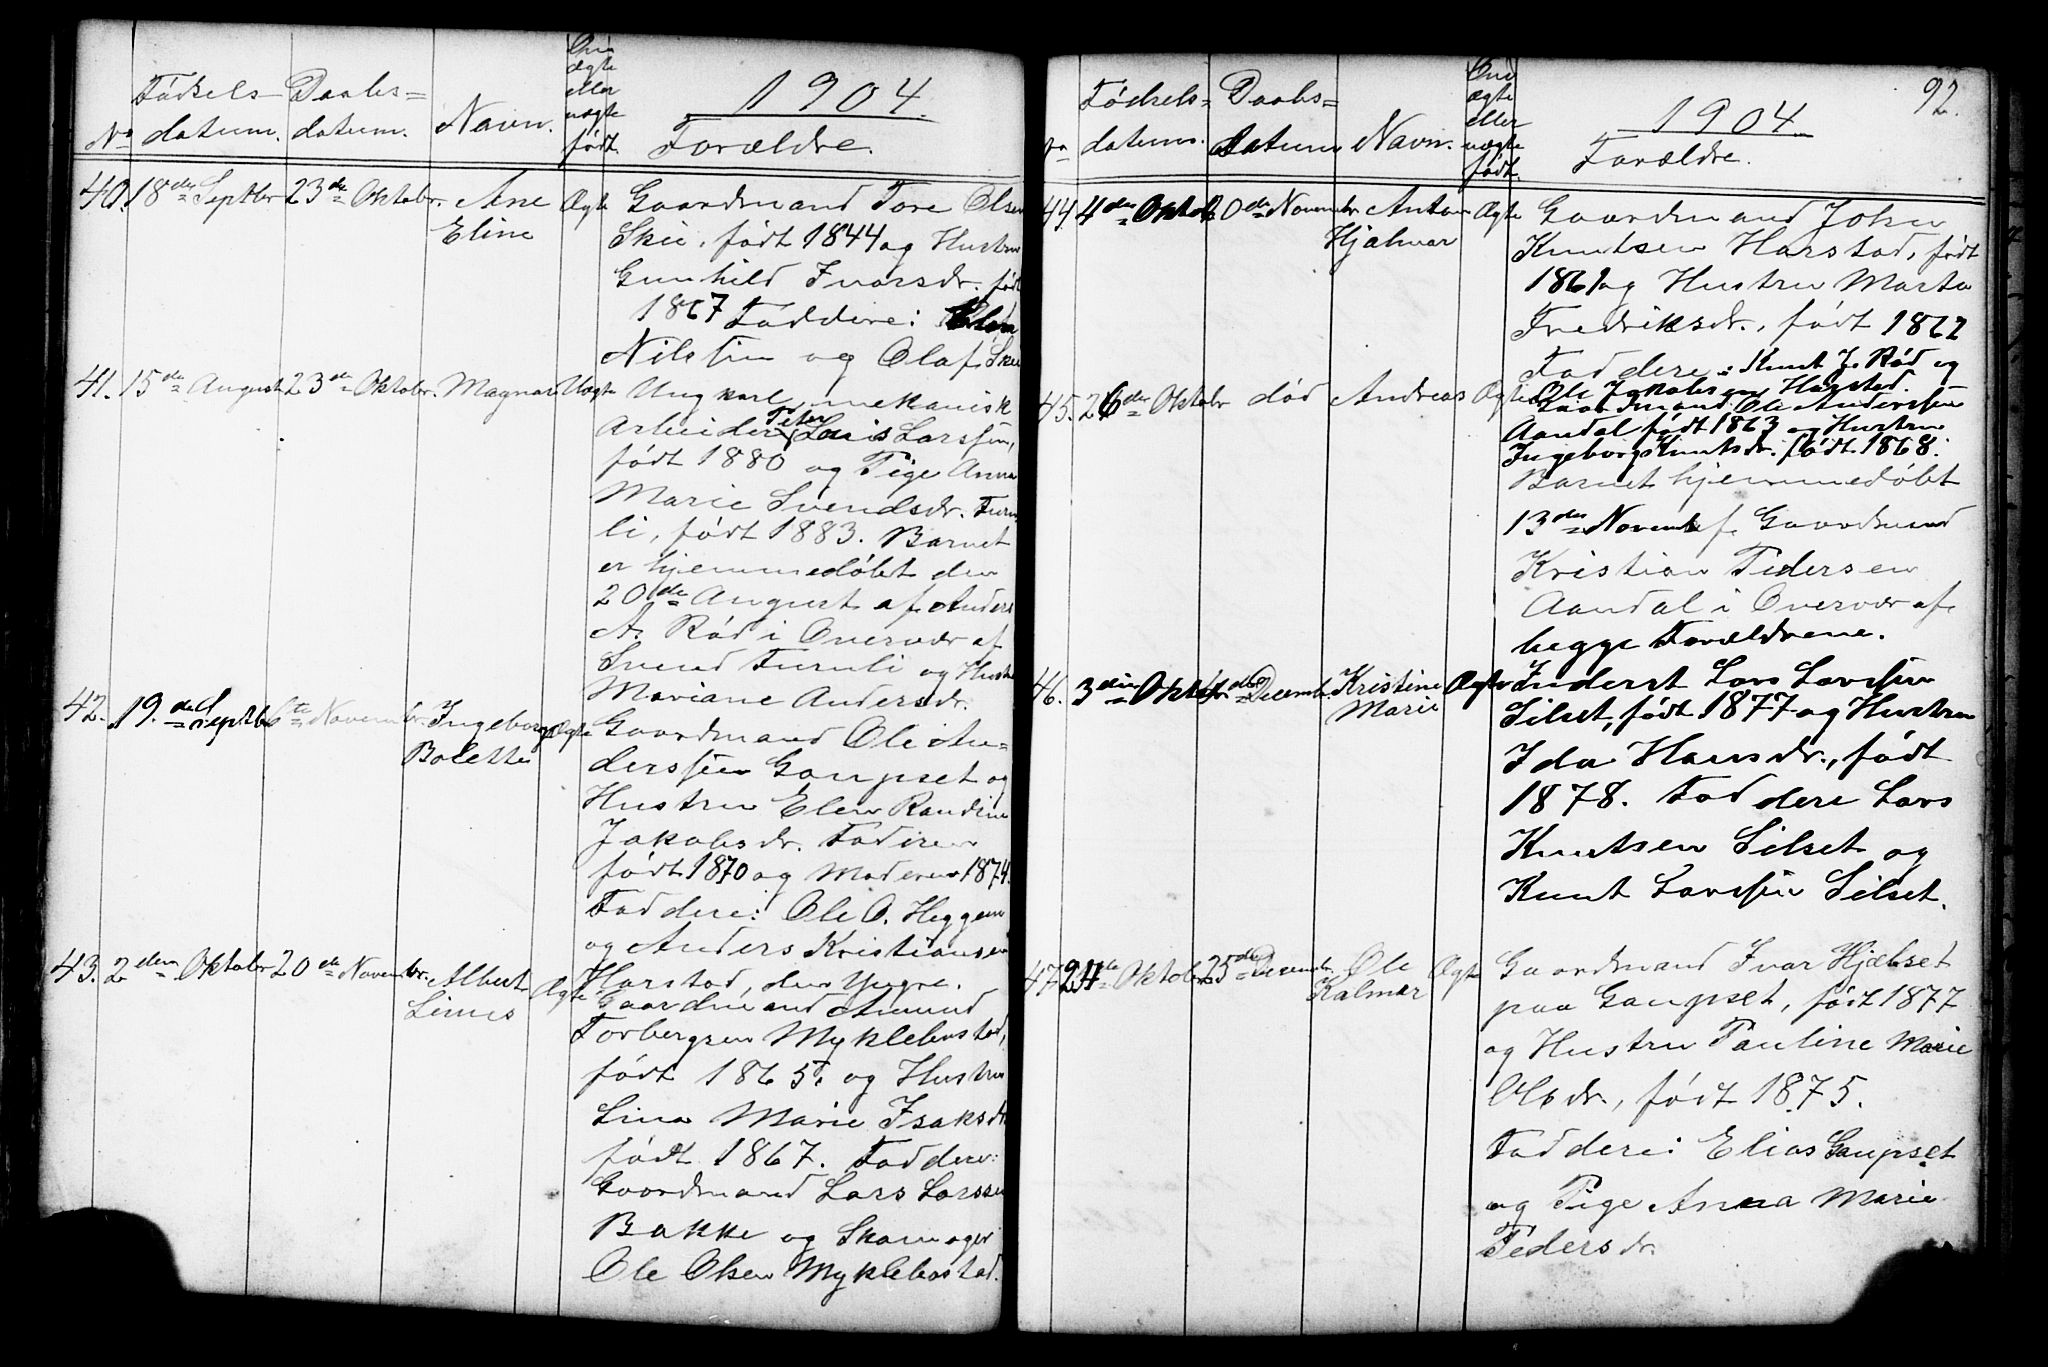 Fødsels-
datum.
Daabs=
datum.
No
Navn.
Om
ægte
eller
uægte
født.
1904.
Forældre.
40. 18de Septbr 23de Oktobr. Ane
Eline
Ægte
Gaardmand Tore Olsen
Skie, født 1844 og Hustru
Gunhild Ivarsdr. født
1867 Faddere:
Nilstun og Olaf Skie
41. 15de August 23de Oktobr. Magnus Uægte
Ungkarl, mekanisk
Arbeider Peter Laris Larssen,
født 1880 og Pige Anna
Marie Svendsdr. Furu
li, født 1883. Barnet
er hjemmedøbt den
20de August af Anders
A. Rød i Overvær af
Svend Furuli og Hustru
Mariane Andersdr.
42. 19de Septbr 6te Novembr. Ingeborg
Bolette
Ægte
Gaardmand Ole An=
derssen Gaupset og
Hustru Elen Randine
Jakobsdr. Faderen
født 1870 og Moderen 1874.
Faddere: Ole O. Heggem
og Anders Kristiansen
Harstad, den Yngre.
43. 2den Oktobr 20de Novembr. Albert
Linus
Ægte
Gaardmand Amund
Torbergsen Myklebostad,
født 1865, og Hustru
Lina Marie Isaksdr
født 1867. Faddere:
Gaardmand Lars Larssen
Bakke og Skomager
Ole Olsen Myklebostad.
92.
Fødsels=
datum.
Daabs=
datum
No
Navn.
Om
ægte
eller
uægte
født.
1904.
Forældre.
44. 4de Oktob 20de Novembr Anton
Hjalmar
Ægte
Gaardmand John
Knutsen Harstad, født
1861 og Hustru Marta
Fredriksdr., født 1862
Faddere: Knut J. Rød og
Ole Jakobsen Harstad.
45. 26de Oktobr død Andreas Ægte
Gaardmand Ole Anderssen
Aandal født 1863 og Hustru
Ingeborg Knutsdr. født 1868.
Barnet hjemmedøbt
13de Novemb af Gaardmand
Kristian Pedersen
Aandal i Overvær af
begge Forældrene.
46. 3die Oktobr 4de Decembr. Kristine
Marie
Ægte
Inderst Lars Larssen
Silset, født 1877 og Hustru
Ida Hansdr., født
1878. Faddere Lars
Knutsen Silset og
Knut Larssen Silset.
47. 24de Oktobr 25de Decembr. Ole
Kalmar
Ægte
Gaardmand Ivar Hjelset
paa Gaupset, født 1877
og Hustru Pauline Marie
Olsdr., født 1875.
Faddere: Elias Gaupset
og Pige Anna Marie
Pedersdr